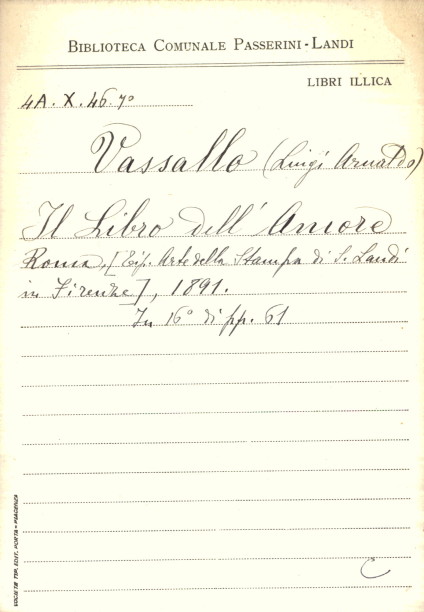 BIBLIOTECA COMUNALE PASSERINI-LANDI
LIBRI ILLICA
4A. X. 46. 7º
Vassallo (Luigi Arnaldo)
Il Libro dell' Amore
Roma, [Tip. Arte della Stampa di S. Landi
in Firenze], 1891.
In 16º di pp. 61
C